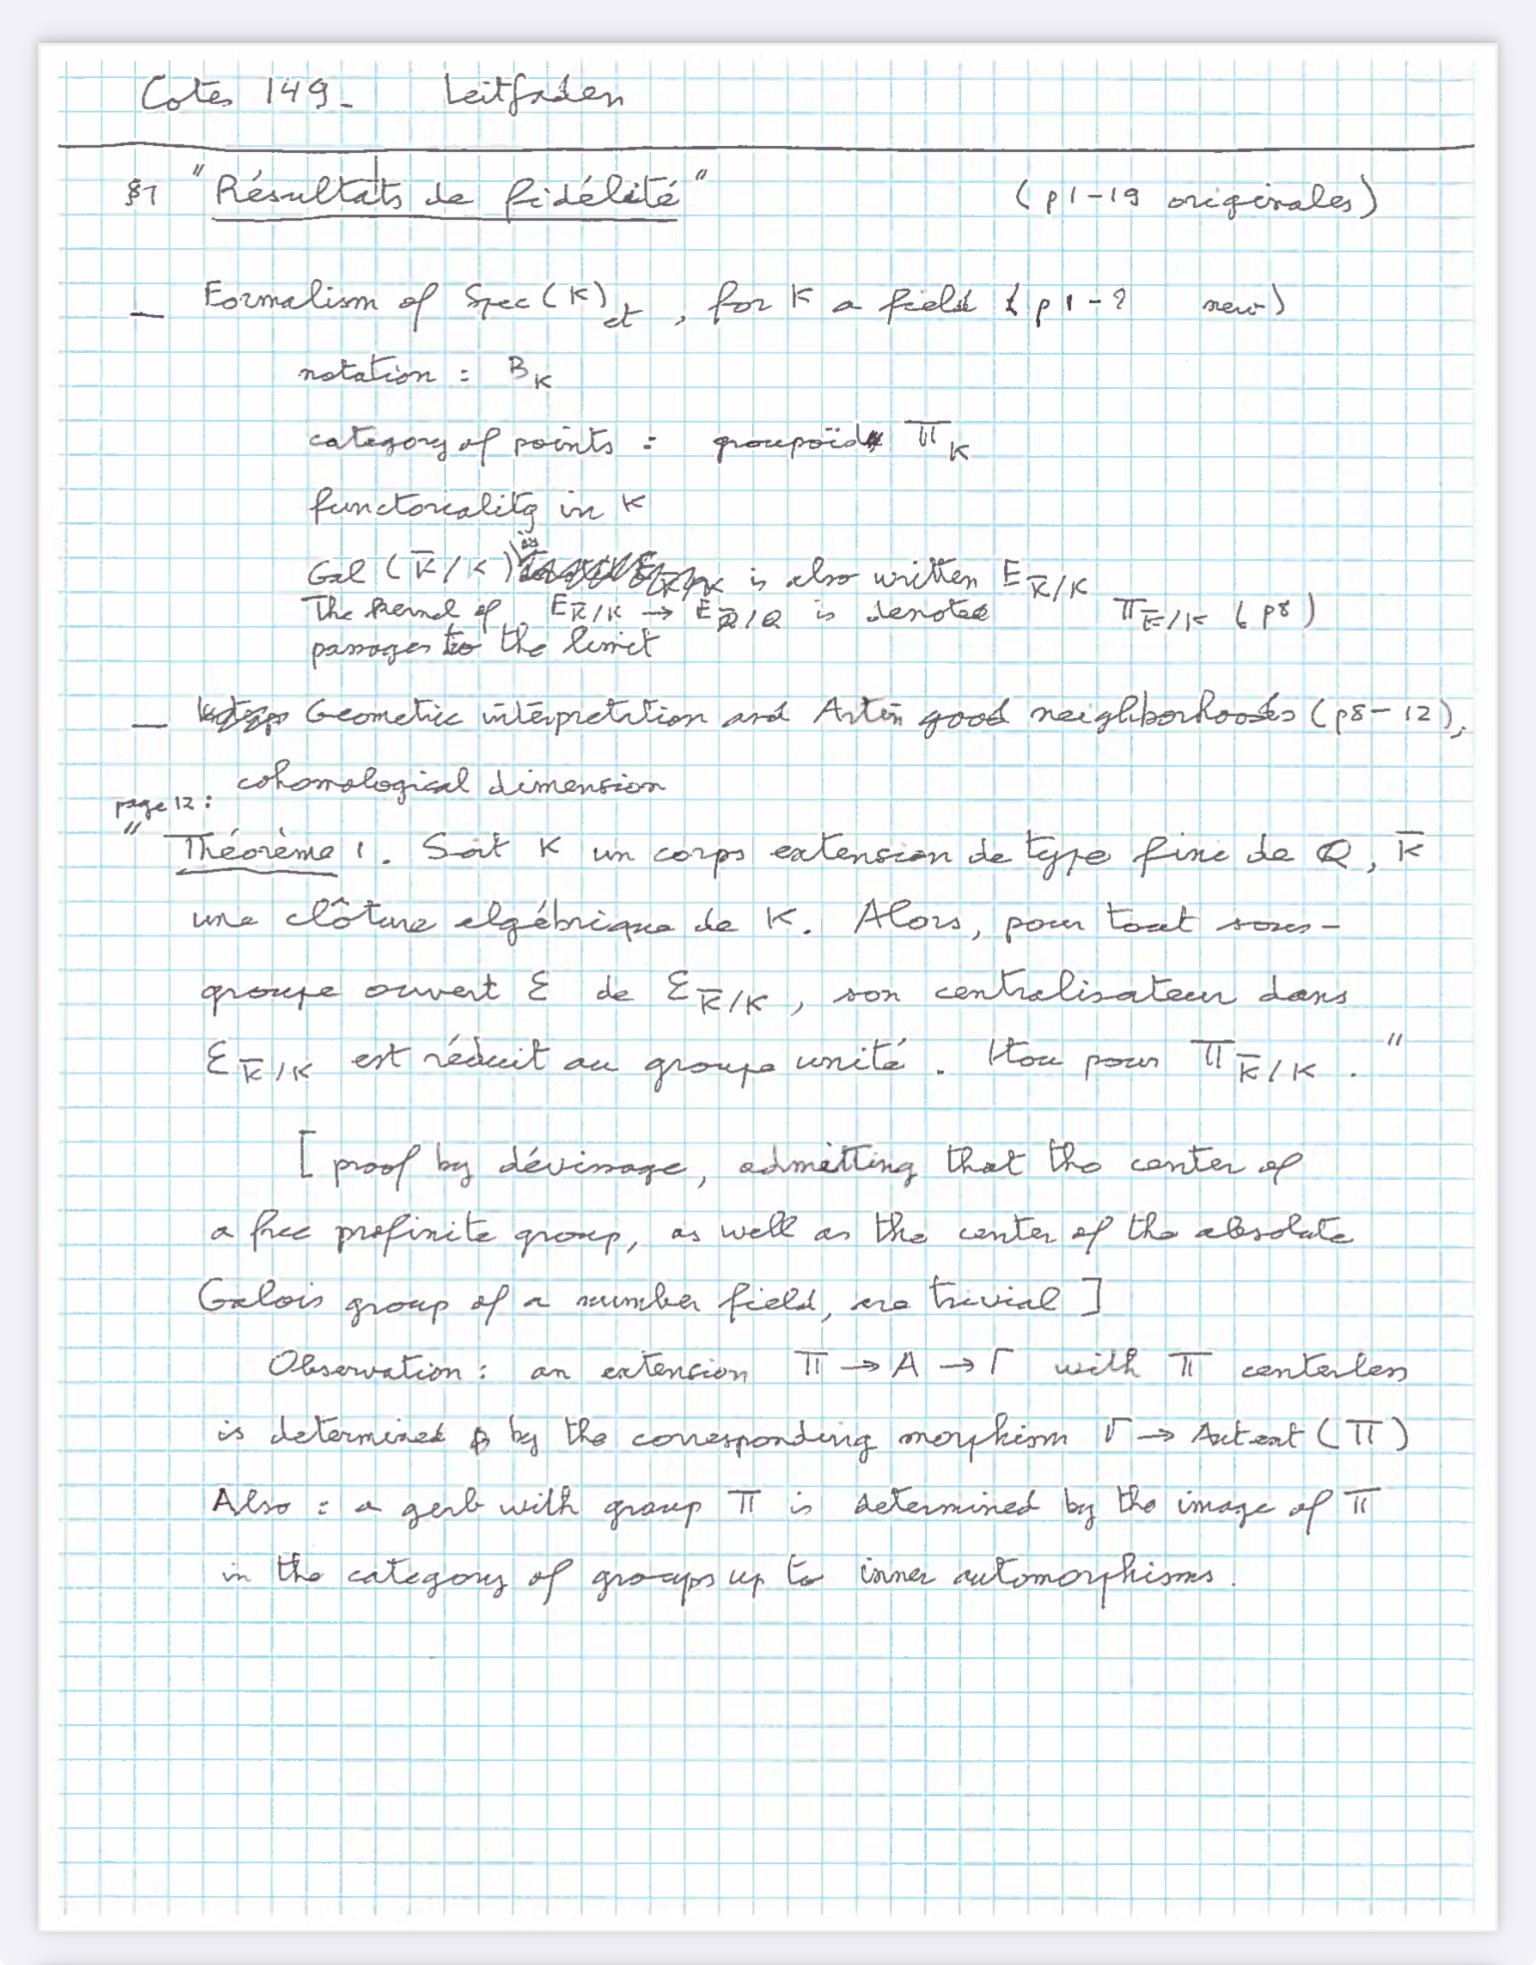 Cotes 149_ Leitfaden
§1 "Résultats de fidélité" (p1-19 originales)
_ Formalism of Spec(K)_et, for K a field (p1-? new)
notation : B_K
category of points : groupoïd Π_K
functoriality in K
Gal (K̄/K) is also written E_K̄/K
The kernel of E_K̄/K → E_Q̄/Q is denoted Π_K̄/K (p8)
passages to the limit
_ Geometric interpretation and Artin good neighborhoods (p8-12),
cohomological dimension
page 12 :
" Théorème 1. Soit K un corps extension de type fini de Q, K̄
une clôture algébrique de K. Alors, pour tout sous-
groupe ouvert Ɛ de Ɛ_K̄/K, son centralisateur dans
Ɛ_K̄/K est réduit au groupe unité. Itou pour Π_K̄/K. "
[ proof by dévissage, admitting that the center of
a free profinite group, as well as the center of the absolute
Galois group of a number field, are trivial ]
Observation : an extension Π → A → Γ with Π centerless
is determined by the corresponding morphism Γ → Autext (Π)
Also : a gerb with group Π is determined by the image of Π
in the category of groups up to inner automorphisms.